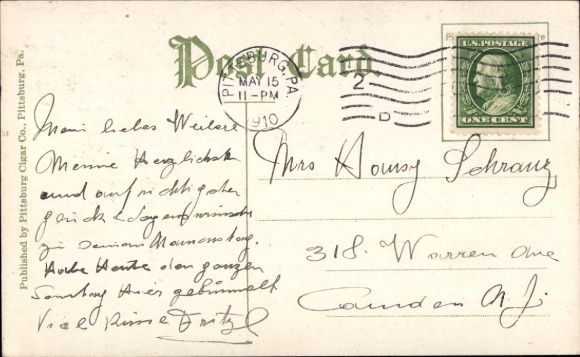 Post Card.
Published by Pittsburg Cigar Co., Pittsburg, Pa.
PITTSBURG, PA.
MAY 15
11-PM
1910
2
D
U.S. POSTAGE
ONE CENT
Mein liebes
Meine Herzlichste
und aufrichtigsten
Glück
zu deinem Namenstag.
Habe Heute den ganzen
Sonntag hier gebummelt
Viel Küsse Fritzl
Mrs Schranz
318. Warren Ave
Camden N. J.